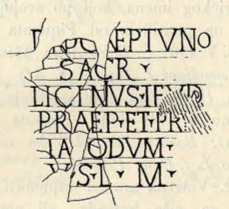 N EPTVNO
SACR
LICINVS·IEVIR
PRAEP·ET·PR
IA ODVM
S·L·M